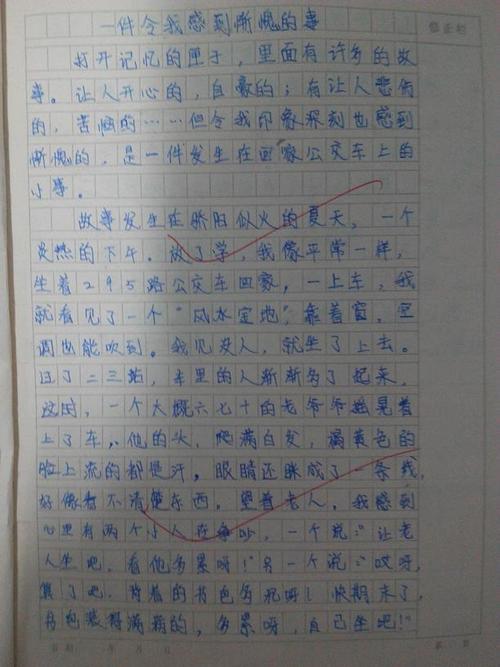 一件令我感到惭愧的事
修正栏
打开记忆的匣子，里面有许多的故
事。让人开心的，自豪的；有让人悲伤
的，苦恼的……但令我印象深刻也感到
惭愧的，是一件发生在回家公交车上的
小事。
故事发生在骄阳似火的夏天，一个
炎热的下午。放了学，我像平常一样，
坐着295路公交车回家，一上车，我
就看见了一个“风水定地”，靠着窗，空
调也能吹到。我见没人，就坐了上去。
过了二三站，车里的人渐渐多了起来，
这时，一个大概六七十的老爷爷摇晃着
上了车，他的头，爬满白发，橘黄色的
脸上流的都是汗，眼睛还眯成了一条线，
好像看不清楚东西。望着老人，我感到
心里有两个小人在，一个说：“让老
人坐吧，看他多累呀！”另一个说：“哎呀，
算了吧，背着的书包多沉呀！快期末了，
书包装得满满的，多累呀，自己坐吧！”